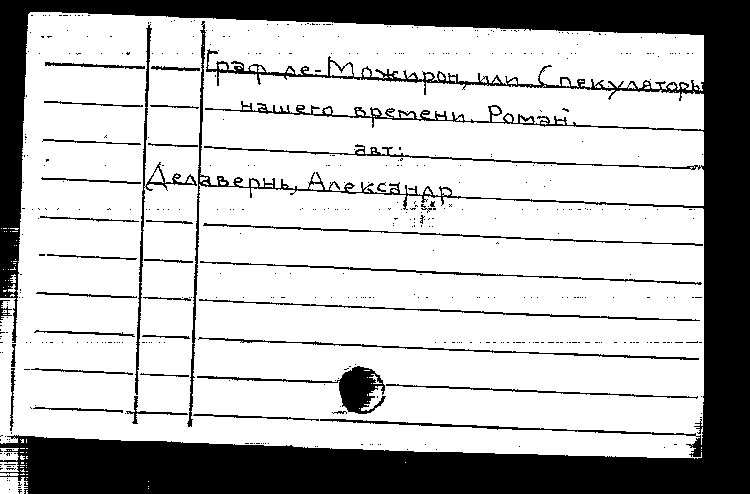 Граф де-Можирон, или Спекуляторы
нашего времени. Роман.
авт:
Делавернь, Александр